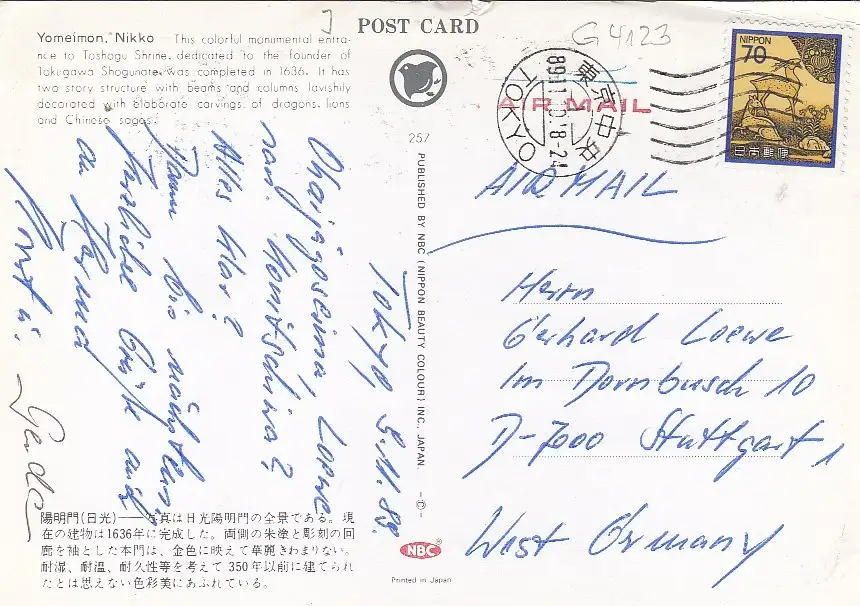 POST CARD
Yomeimon, Nikko — This colorful monumental entra-
nce to Toshogu Shrine, dedicated to the founder of
Tokugawa Shogunate, was completed in 1636. It has
two story structure with beams and columns lavishly
decorated with elaborate carvings of dragons, lions
and Chinese sages.
G 4123
NIPPON
70
日本郵便
東京中央
TOKYO
18-24
AIR MAIL
AIR MAIL
257
PUBLISHED BY NBC (NIPPON BEAUTY COLOUR) INC. JAPAN. -©-
Tokyo 9.11.89.
Ohaijogoseima, Loewe
san. Konitschiwa?
Alles klar?
Dann bis nächstens.
Herzliche Grüße auch
an Firma
Horst u.
Gerda
Herrn
Gerhard Loewe
Im Dornbusch 10
D-7000 Stuttgart 1
West Germany
陽明門(日光)——写真は日光陽明門の全景である。現
在の建物は1636年に完成した。両側の朱塗と彫刻の回
廊を袖とした本門は、金色に映えて華麗きわまりない。
耐湿、耐温、耐久性等を考えて350年以前に建てられ
たとは思えない色彩美にあふれている。
NBC
Printed in Japan